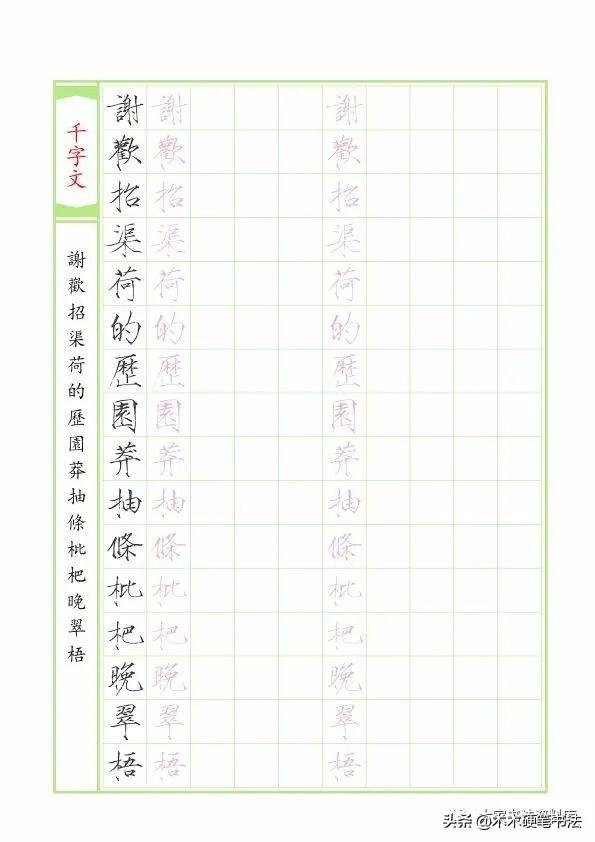 千字文
謝歡招渠荷的歷園莽抽條枇杷晚翠梧
謝歡招渠荷的歷園莽抽條枇杷晚翠梧
謝歡招渠荷的歷園莽抽條枇杷晚翠梧
謝歡招渠荷的歷園莽抽條枇杷晚翠梧
头条 @木木硬笔书法